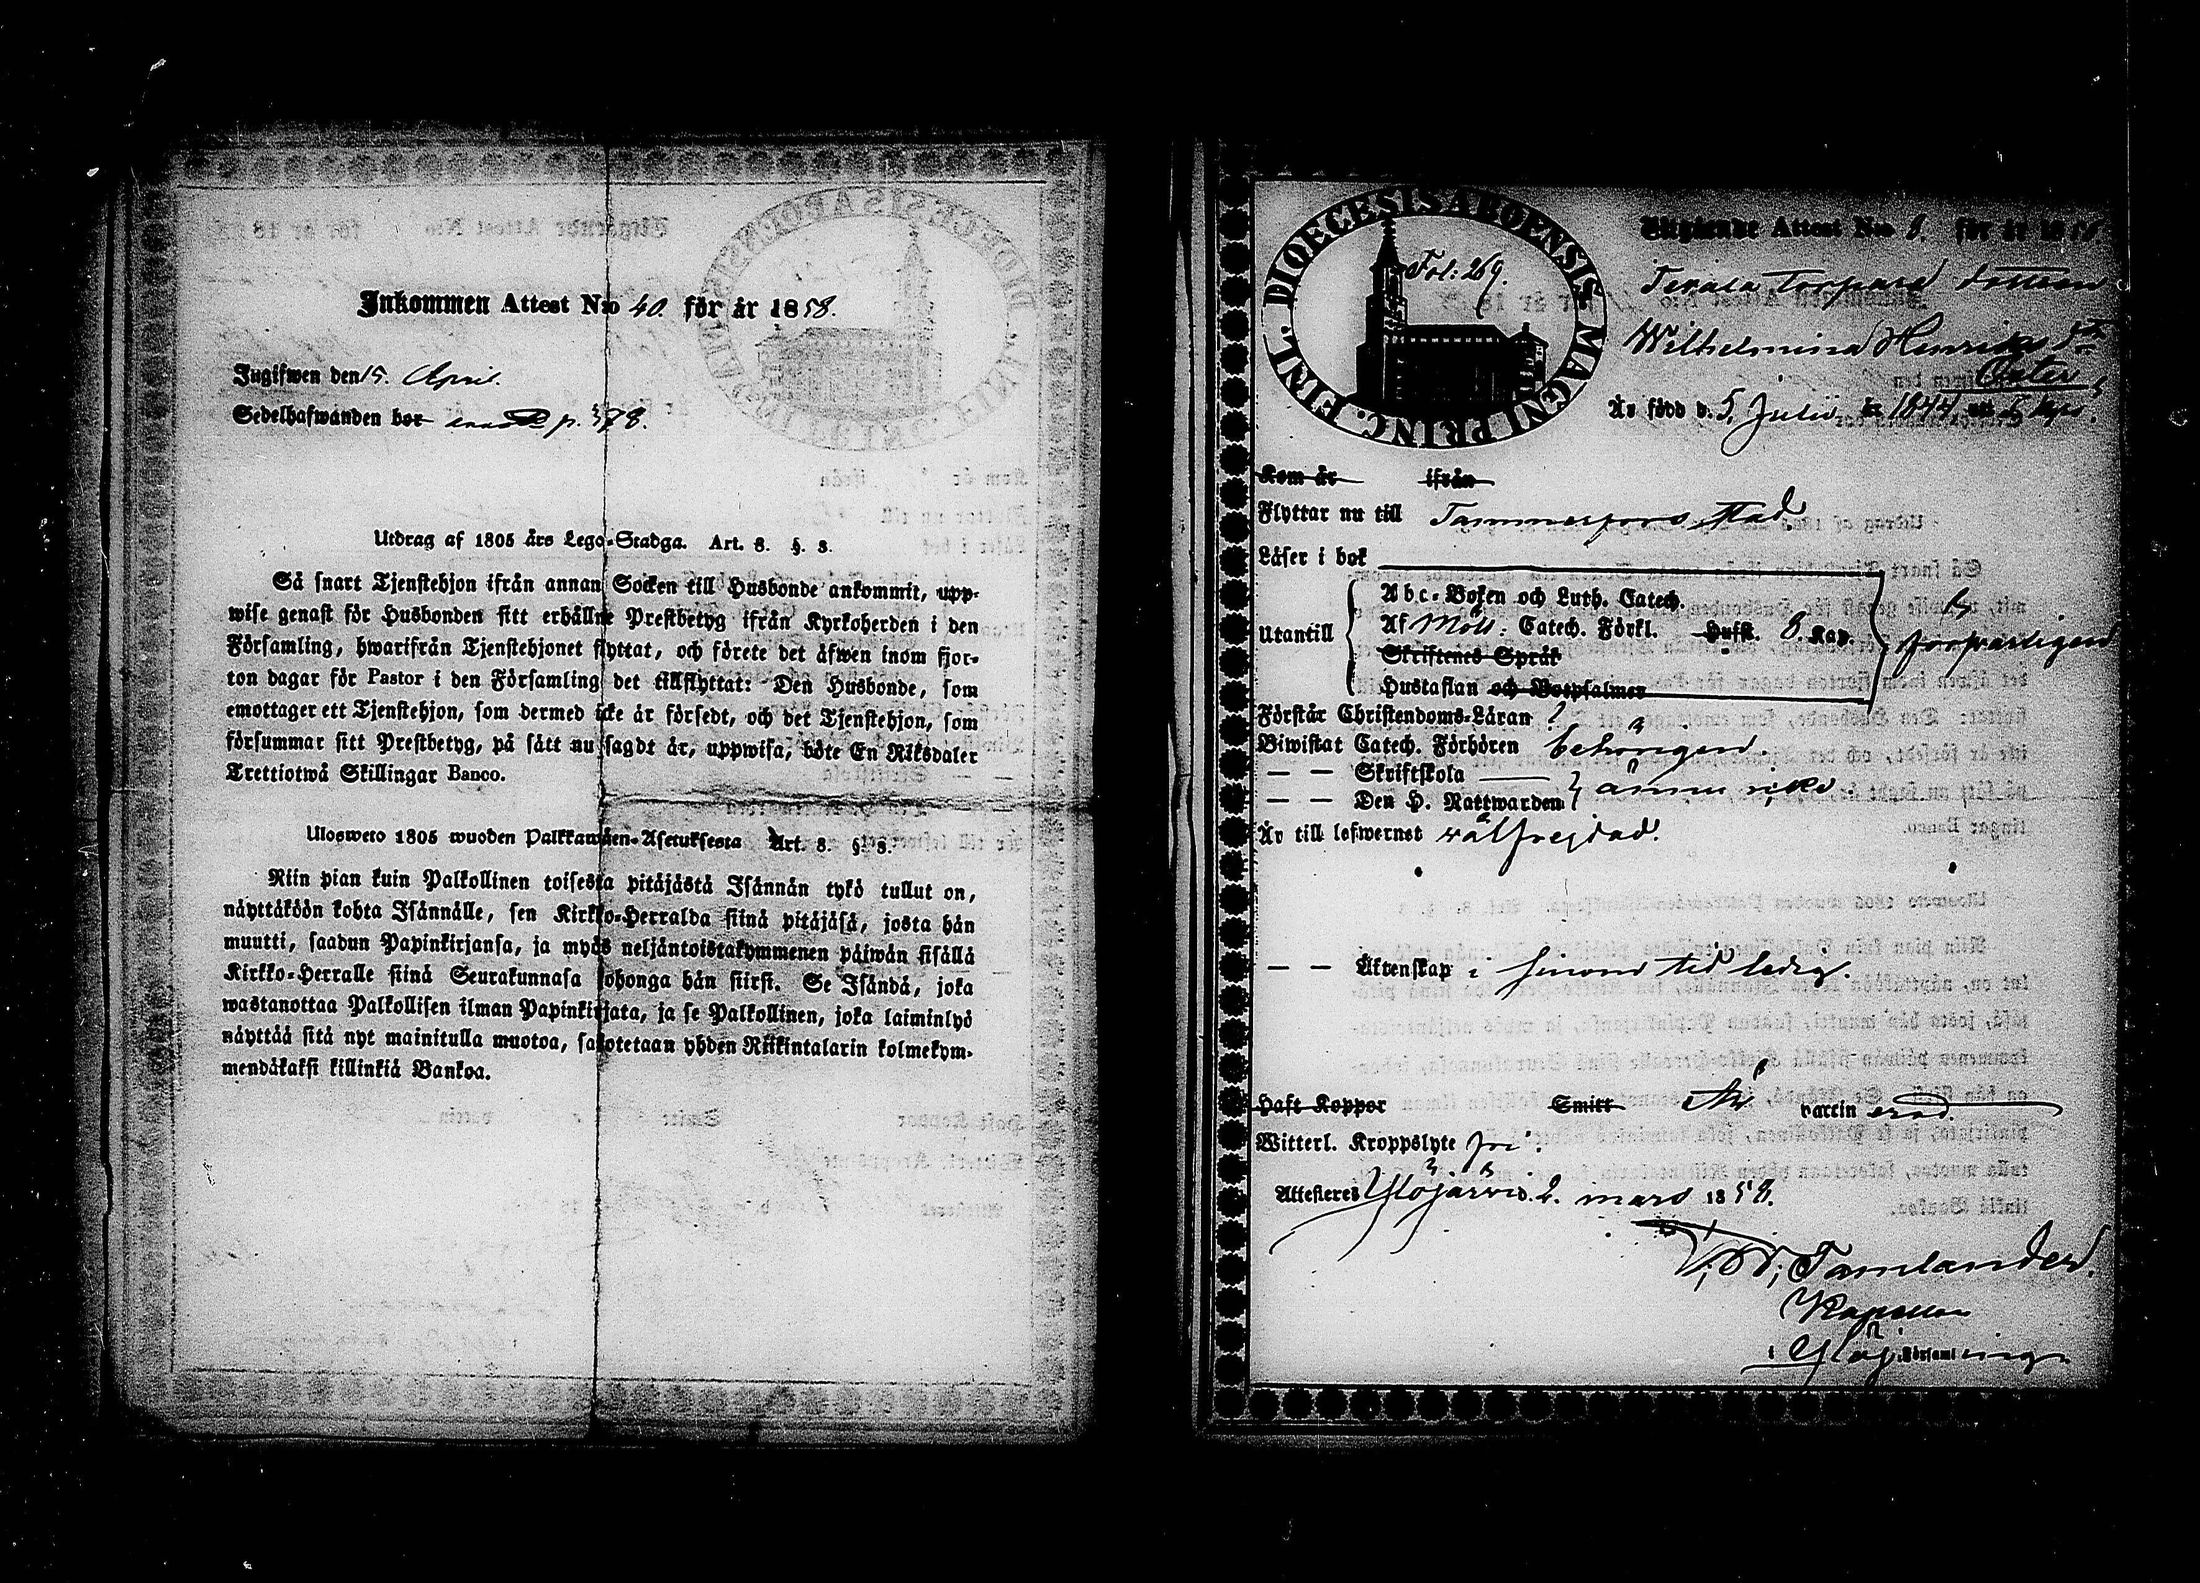 Inkommen Attest N:o 40. för år 1858.
Ingifwen den 15. April.
Sedelhafwanden bor p. 378.
Utdrag af 1805 års Lego-Stadga. Art. 8. §. 3.
Så snart Tjenstehjon ifrån annan Socken till Husbonde ankommit, upp-
wise genast för Husbonden sitt erhållne Prestbetyg ifrån Kyrkoherden i den
Församling, hwarifrån Tjenstehjonet flyttat, och förete det äfwen inom fjor-
ton dagar för Pastor i den Församling det tillflyttat: Den Husbonde, som
emottager ett Tjenstehjon, som dermed icke är försedt, och det Tjenstehjon, som
försummar sitt Prestbetyg, på sätt nu sagdt är, uppwisa, böte En Riksdaler
Trettiotwå Skillingar Banco.
Ulosweto 1805 wuoden Palkkawäen-Asetuksesta Art. 8. §. 3.
Niin pian kuin Palkollinen toisesta pitäjästä Isännän tykö tullut on,
näyttäköön kohta Isännälle, sen Kirkko-Herralda siinä pitäjäsä, josta hän
muutti, saadun Papinkirjansa, ja myös neljäntoistakymmenen päiwän sisällä
Kirkko-Herralle siinä Seurakunnasa johonga hän siirsi. Se Isändä, joka
wastanottaa Palkollisen ilman Papinkirjata, ja se Palkollinen, joka laiminlyö
näyttää sitä nyt mainitulla muotoa, sakotetaan yhden Riikintalarin kolmekym-
mendäkaksi killinkiä Bankoa.
DIOECESIS ABOENSIS MAGNI PRINC. FINL.
Fol: 269.
Utgående Attest N:o 8. för år 1858.
Torpare dottren
Wilhelmina Henriks dr
Är född d. 5 Julii år 1844
Kom år ifrån
Flyttar nu till Tammerfors stad
Läser i bok
Utantill
Abc-Boken och Luth. Catech.
Af Möll: Catech. Förkl. Hufst. 8. Kap.
Skriftenes Språk
Hustaflan och Botpsalmer
försvarligen
Förstår Christendoms-Läran
Biwistat Catech. Förhören behörigen.
— — Skriftskola
— — Den H. Nattwarden
ännu icke
Är till lefwernet wälfrejdad.
— — Äktenskap i sinom tid ledig.
Haft Koppor Smitt Är vaccinerad
Witterl. Kroppslyte fri.
Attesteres Ylöjärvi d. 2. mars 1858.
Tamlander.
Kapellan
i Ylöj. Församling.